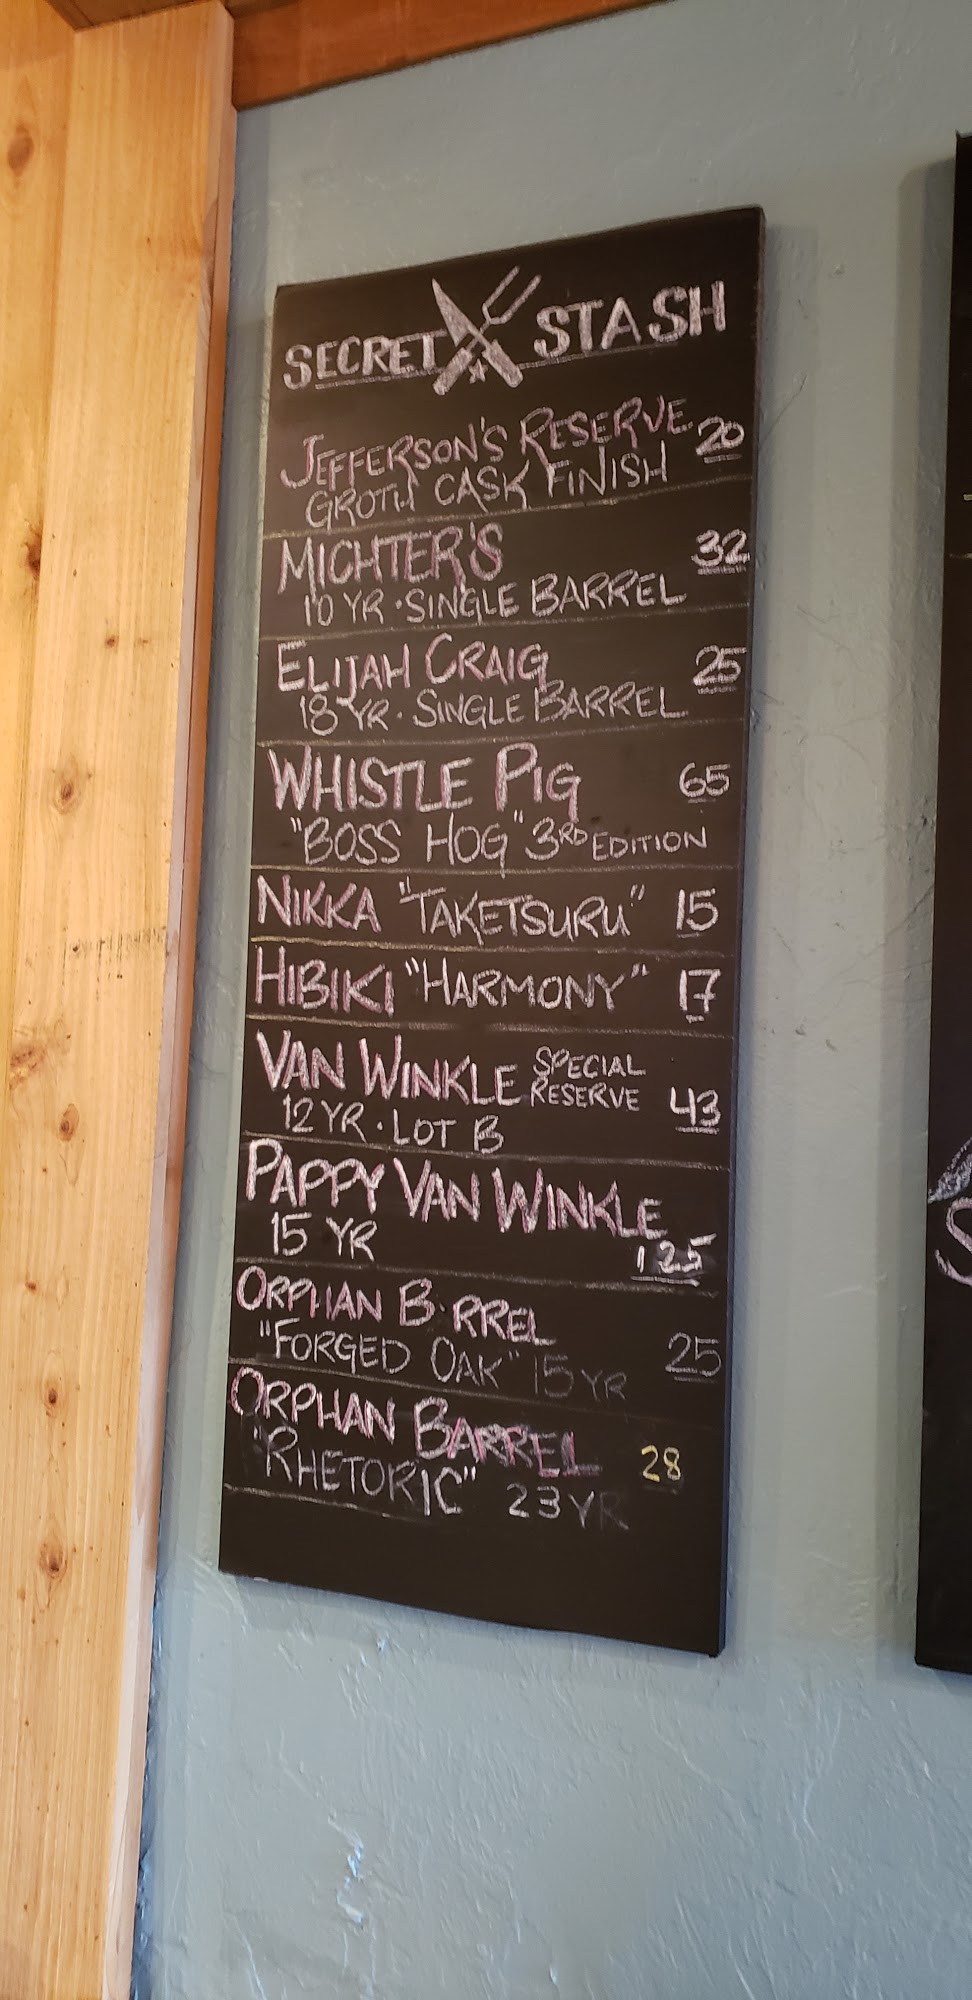 SECRET STASH
JEFFERSON'S RESERVE 20
GROTH CASK FINISH
MICHTER'S 32
10 YR · SINGLE BARREL
ELIJAH CRAIG 25
18 YR · SINGLE BARREL
WHISTLE PIG 65
"BOSS HOG" 3RD EDITION
NIKKA "TAKETSURU" 15
HIBIKI "HARMONY" 17
VAN WINKLE SPECIAL RESERVE 43
12 YR · LOT B
PAPPY VAN WINKLE
15 YR 125
ORPHAN B RREL
"FORGED OAK" 15 YR 25
ORPHAN BARREL 28
"RHETORIC" 23 YR